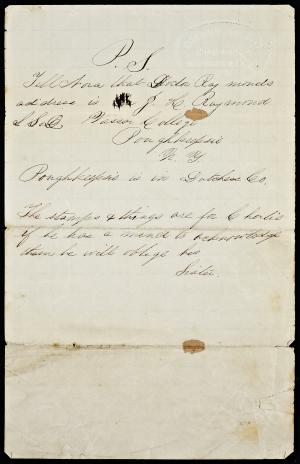 P. S.
Tell Nora that Doctor Raymonds
address is J. H. Raymond
L L. D. Vassar College
Poughkeepsie
N. Y.
Poughkepsie is in Dutchess Co,
The stamps & things are for Charlie
if he has a mind to acknowledge
them he will oblige his
Sister.